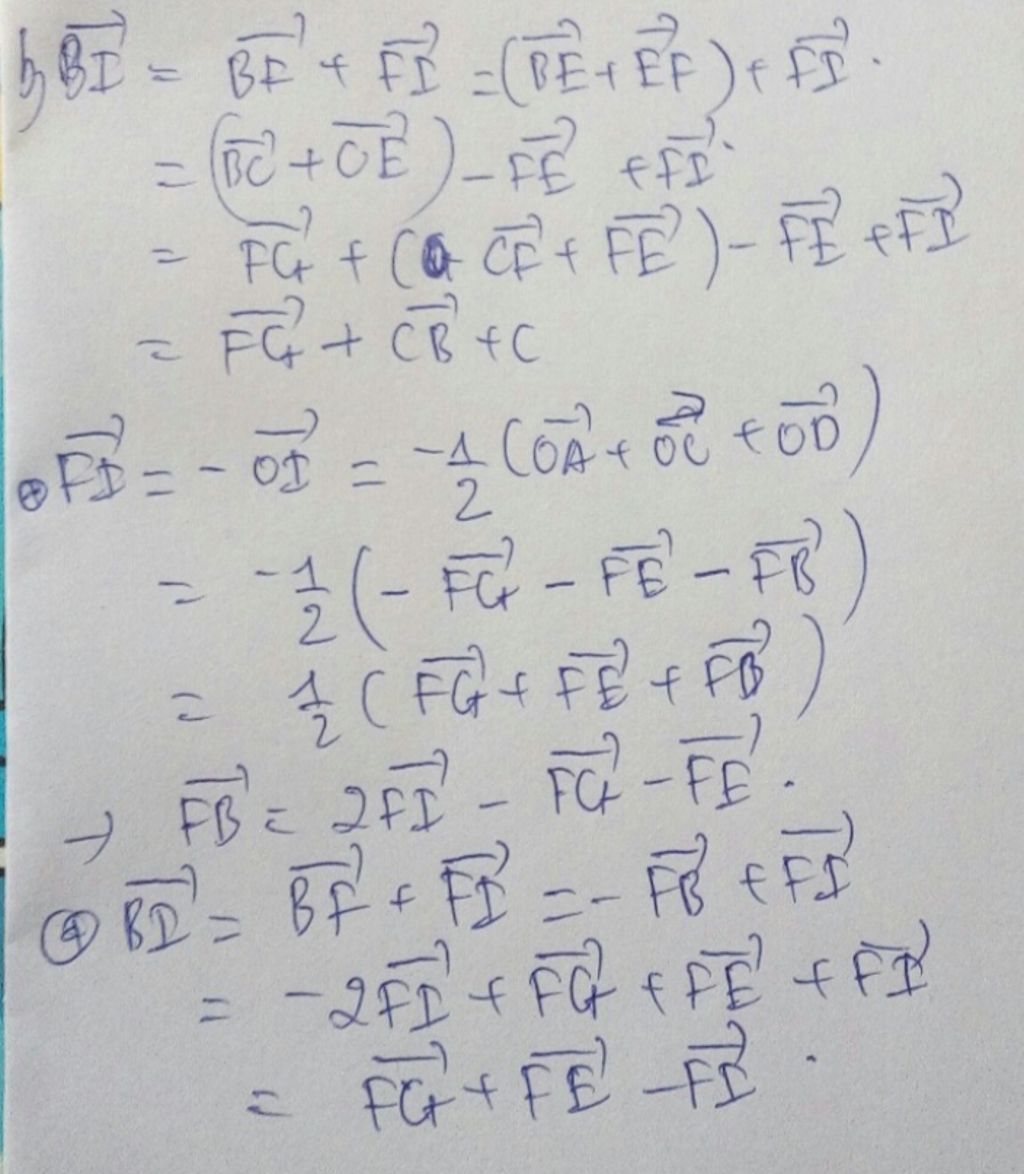 b, \overrightarrow{BI} = \overrightarrow{BF} + \overrightarrow{FI} = (\overrightarrow{BE} + \overrightarrow{EF}) + \overrightarrow{FI}.
= (\overrightarrow{BC} + \overrightarrow{CE}) - \overrightarrow{FE} + \overrightarrow{FI}.
= \overrightarrow{FG} + (\overrightarrow{CF} + \overrightarrow{FE}) - \overrightarrow{FE} + \overrightarrow{FI}
= \overrightarrow{FG} + \overrightarrow{CB} + C
⊕ \overrightarrow{FI} = - \overrightarrow{OI} = -\frac{1}{2} (\overrightarrow{OA} + \overrightarrow{OC} + \overrightarrow{OD})
= -\frac{1}{2} (- \overrightarrow{FG} - \overrightarrow{FE} - \overrightarrow{FB})
= \frac{1}{2} (\overrightarrow{FG} + \overrightarrow{FE} + \overrightarrow{FB})
→ \overrightarrow{FB} = 2\overrightarrow{FI} - \overrightarrow{FG} - \overrightarrow{FE}.
⊕ \overrightarrow{BI} = \overrightarrow{BF} + \overrightarrow{FI} = - \overrightarrow{FB} + \overrightarrow{FI}
= -2\overrightarrow{FI} + \overrightarrow{FG} + \overrightarrow{FE} + \overrightarrow{FI}
= \overrightarrow{FG} + \overrightarrow{FE} - \overrightarrow{FI}.